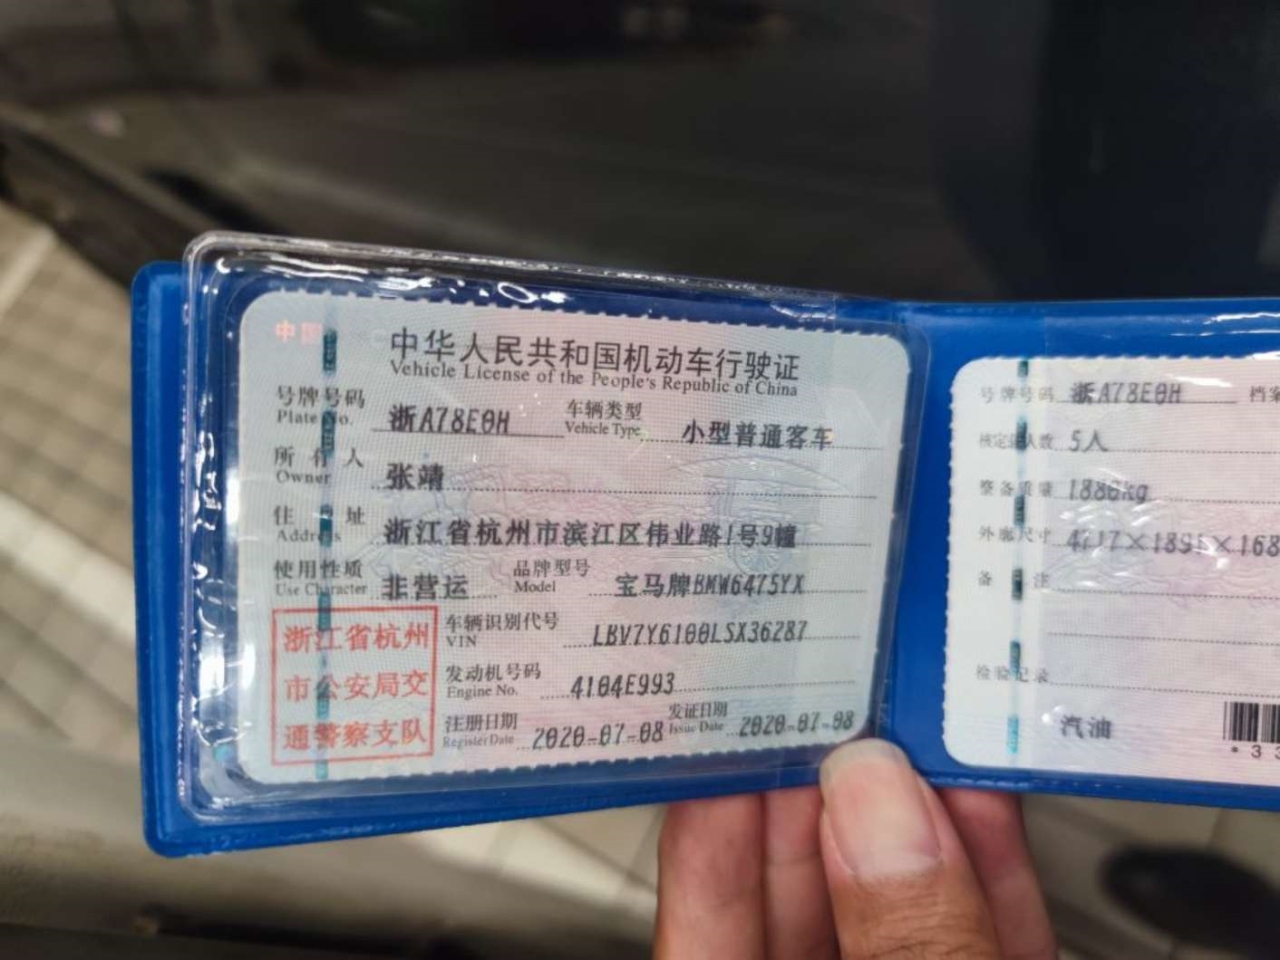 中国
中华人民共和国机动车行驶证
Vehicle License of the People's Republic of China
号牌号码 浙A78E0H 车辆类型 小型普通客车
Plate No. Vehicle Type
所有人 张靖
Owner
住址 浙江省杭州市滨江区伟业路1号9幢
Address
使用性质 非营运 品牌型号 宝马牌BMW6475YX
Use Character Model
浙江省杭州
市公安局交
通警察支队
车辆识别代号 LBV7Y6100LSX36287
VIN
发动机号码 4104E993
Engine No.
注册日期 2020-07-08 发证日期 2020-07-08
Register Date Issue Date
号牌号码 浙A78E0H 档案
核定载人数 5人
整备质量 1880kg
外廓尺寸 4717×1891×168
备注
检验记录
汽油
*33